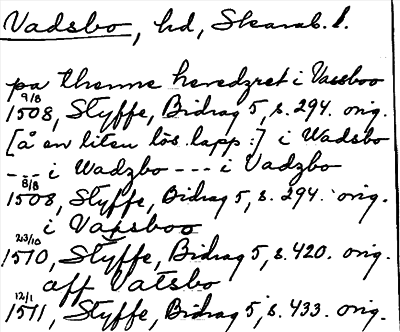 Vadsbo, hd, Skarab. l.
pa thenne heredzret i Vassboo
9/8
1508, Styffe, Bidrag 5, s. 294. orig.
[å en liten lös lapp:] i Wadsbo
--- i Wadzbo --- i Vadzbo
8/8
1508, Styffe, Bidrag 5, s. 294. orig.
i Vaszboo
23/10
1510, Styffe, Bidrag 5, s. 420. orig.
aff Vatsbo
12/1
1511, Styffe, Bidrag 5, s. 433. orig.